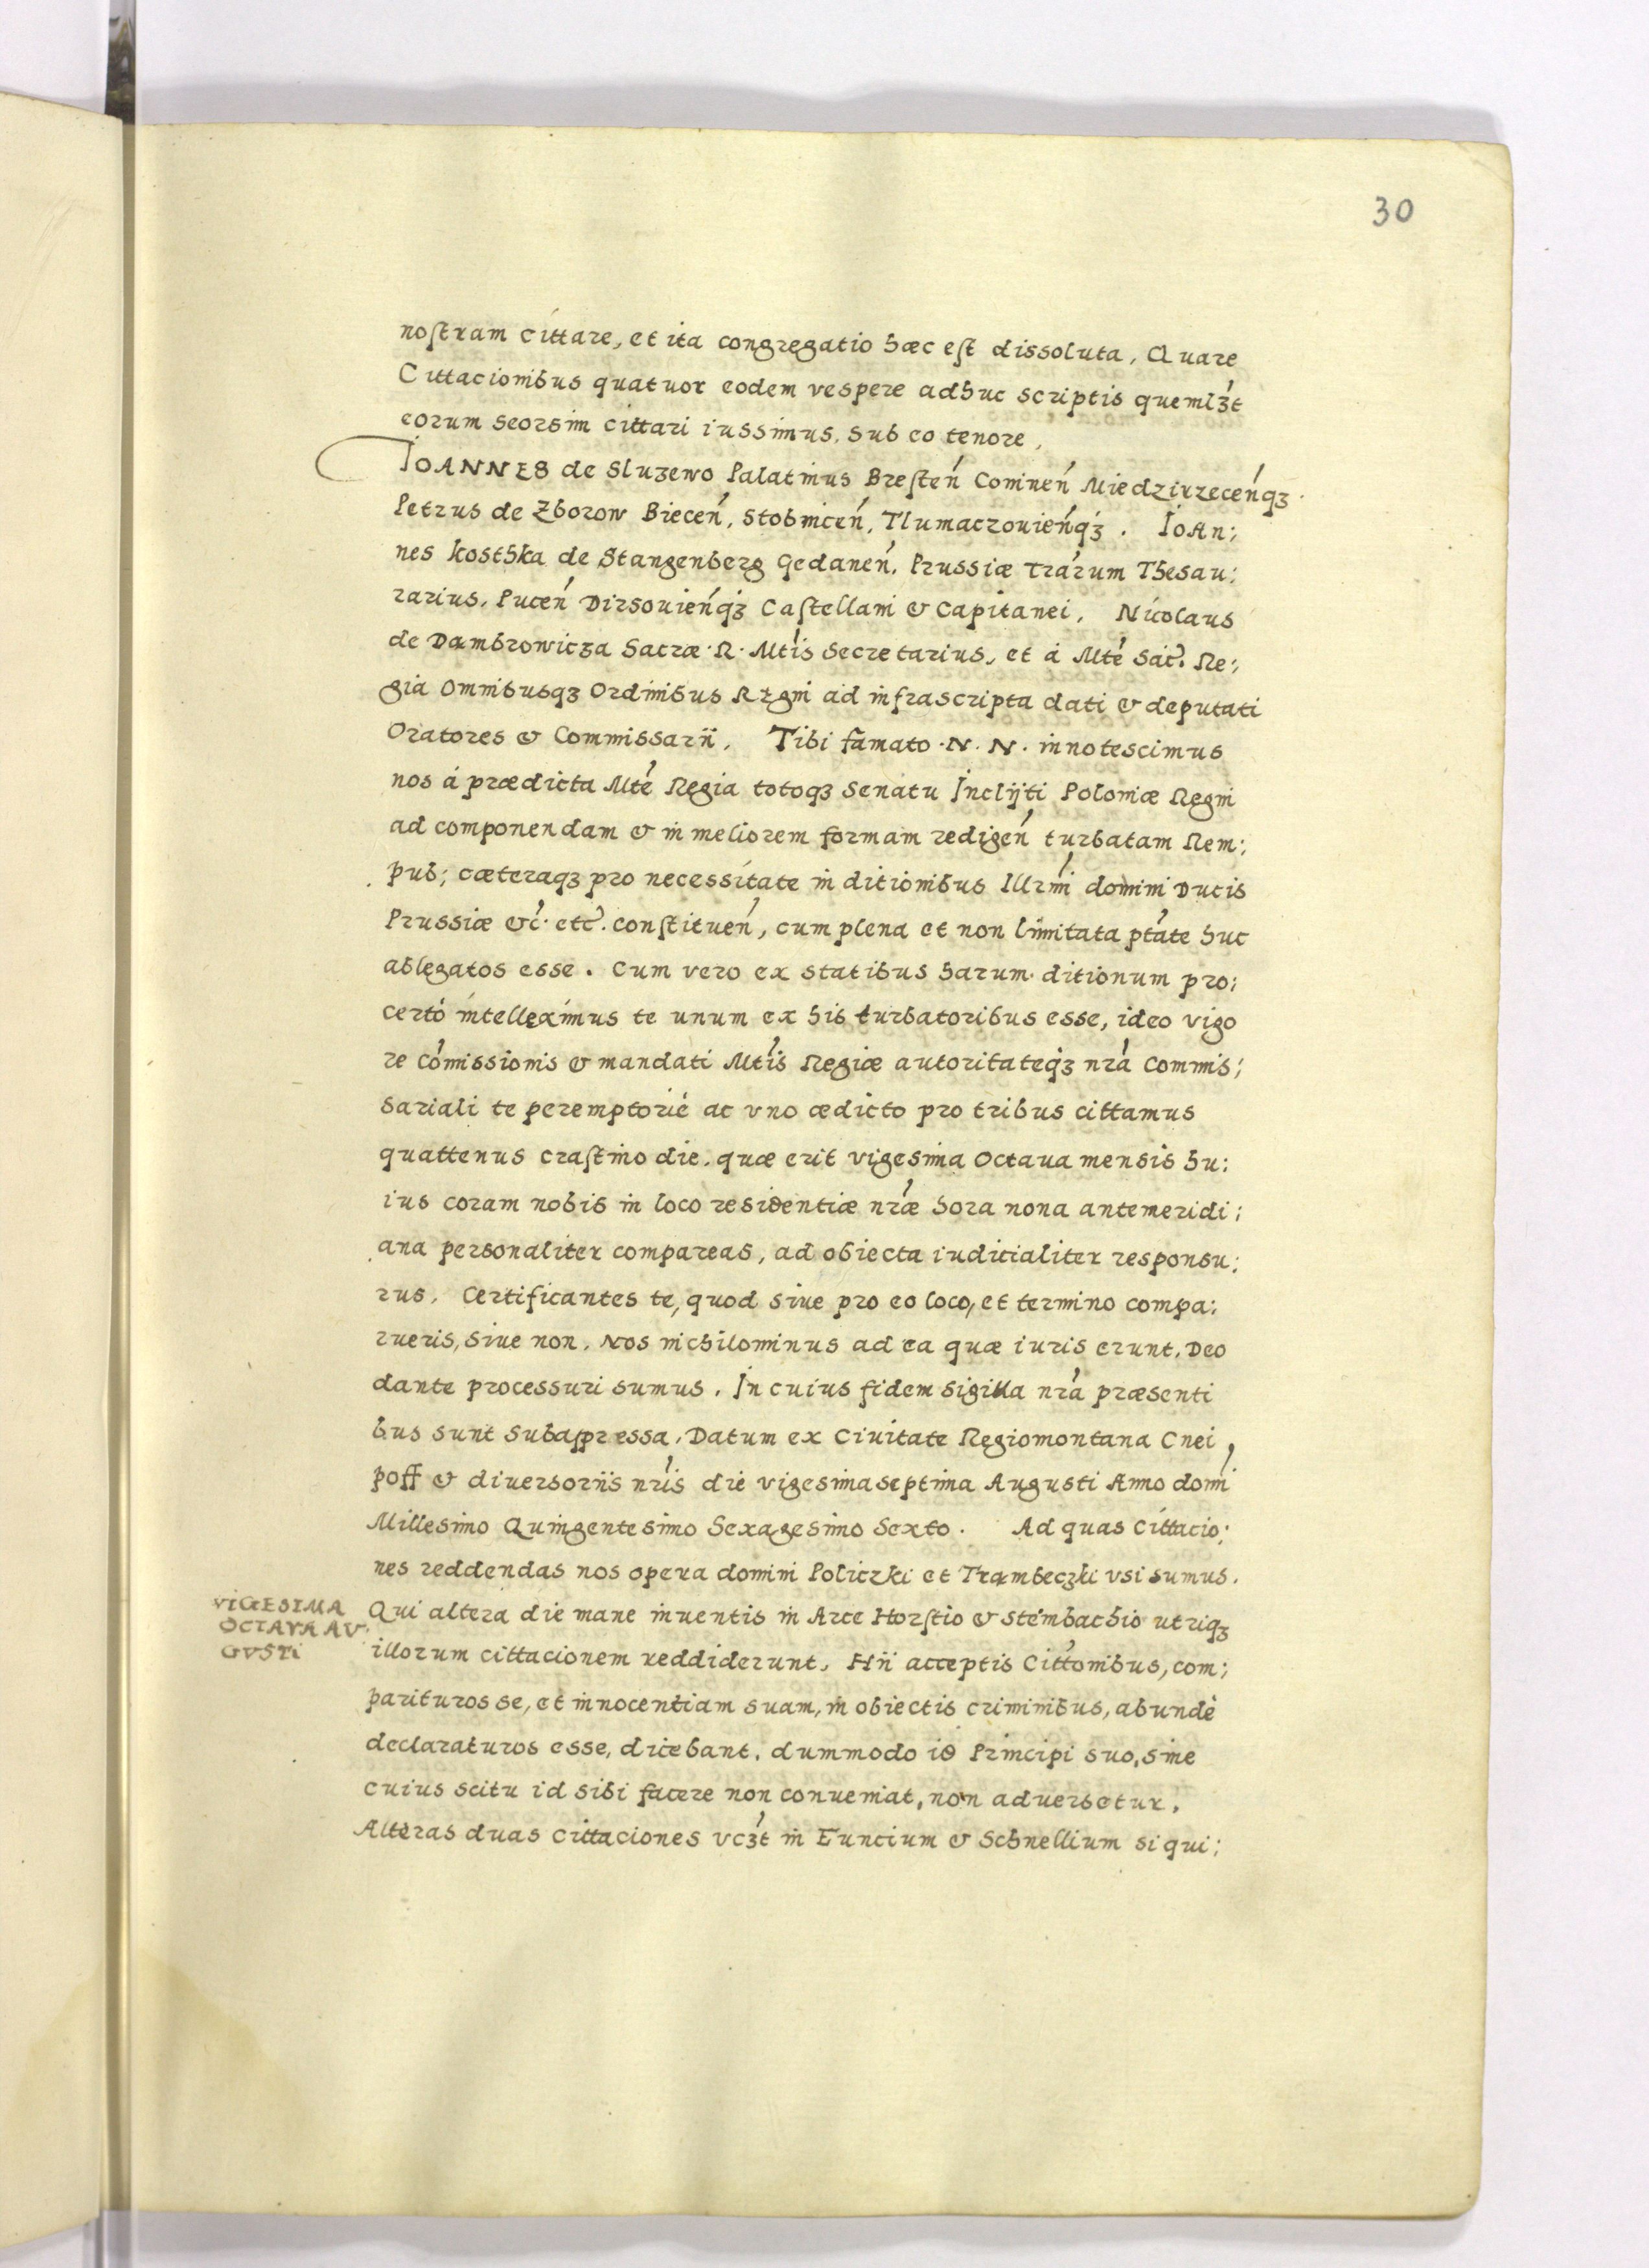 30
nostram cittare, et ita congregatio hæc est dissoluta, Quare
Cittacionibus quatuor eodem vespere adhuc scriptis quemlꝫt
eorum seorsim cittari iussimus, sub eo tenore,
IOANNES de Sluzewo Palatinus Bresten̄ Coninen̄ Miedzirzecen̄qꝫ.
Petrus de Zborow Biecen̄, Stobnicen̄, Tlumaczouien̄qꝫ. Ioan:
nes kosthka de Stangenberg Gedanen̄, Prussiæ Trārum Thesau:
rarius, Pucen̄ Dirsouien̄qꝫ Castellani & Capitanei, Nicolaus
de Dambrowicza Sacræ. R. Mtīs Secretarius, et à Mtē Sac̄. Re:
gia Omnibusqꝫ Ordinibus Regni ad infrascripta dati & deputati
Oratores & Commissarii, Tibi famato. N. N. innotescimus
nos à prædicta Mtē Regia totoqꝫ Senatu Inclÿti Poloniæ Regni
ad componendam & in meliorem formam redigen̄ turbatam Rem:
pub; cæteraqꝫ pro necessitate in ditionibus Illrmī domini Ducis
Prussiæ &c̄. etc̄. constituen̄, cum plena et non limitata ptāte huc
ablegatos esse. Cum vero ex statibus harum ditionum pro:
certò intelleximus te unum ex his turbatoribus esse, ideo vigo
re Com̄issionis & mandati Mtīs Regiæ autoritateqꝫ nrā Commis:
sariali te peremptoriè ac vno ædicto pro tribus cittamus
quattenus crastino die, quæ erit vigesima Octaua mensis hu:
ius coram nobis in loco residentiæ nrǣ hora nona antemeridi:
ana personaliter compareas, ad obiecta iudicialiter responsu:
rus, Certificantes te, quod siue pro eo loco, et termino compa:
rueris, siue non, Nos nichilominus ad ea quæ iuris erunt, Deo
dante processuri sumus. In cuius fidem sigilla nrā præsenti
bus sunt subappressa, Datum ex Ciuitate Regiomontana Cnei,
poff & diuersoriis nrīs die vigesimaseptima Augusti Anno domī
Millesimo Quingentesimo Sexagesimo Sexto. Ad quas Cittacio:
nes reddendas nos opera domini Policzki et Trambeczki vsi sumus.
VIGESIMA
OCTAVA AV:
GVSTI
Qui altera die mane inuentis in Arce Horstio & Steinbachio utriqꝫ
illorum cittacionem reddiderunt, Hii acceptis Cittōnibus, com:
parituros se, et innocentiam suam, in obiectis criminibus, abundè
declaraturos esse, dicebant, dummodo id Principi suo, sine
cuius scitu id sibi facere non conueniat, non aduersetur.
Alteras duas cittaciones vcꝫt in Funcium & Schnellium siqui: